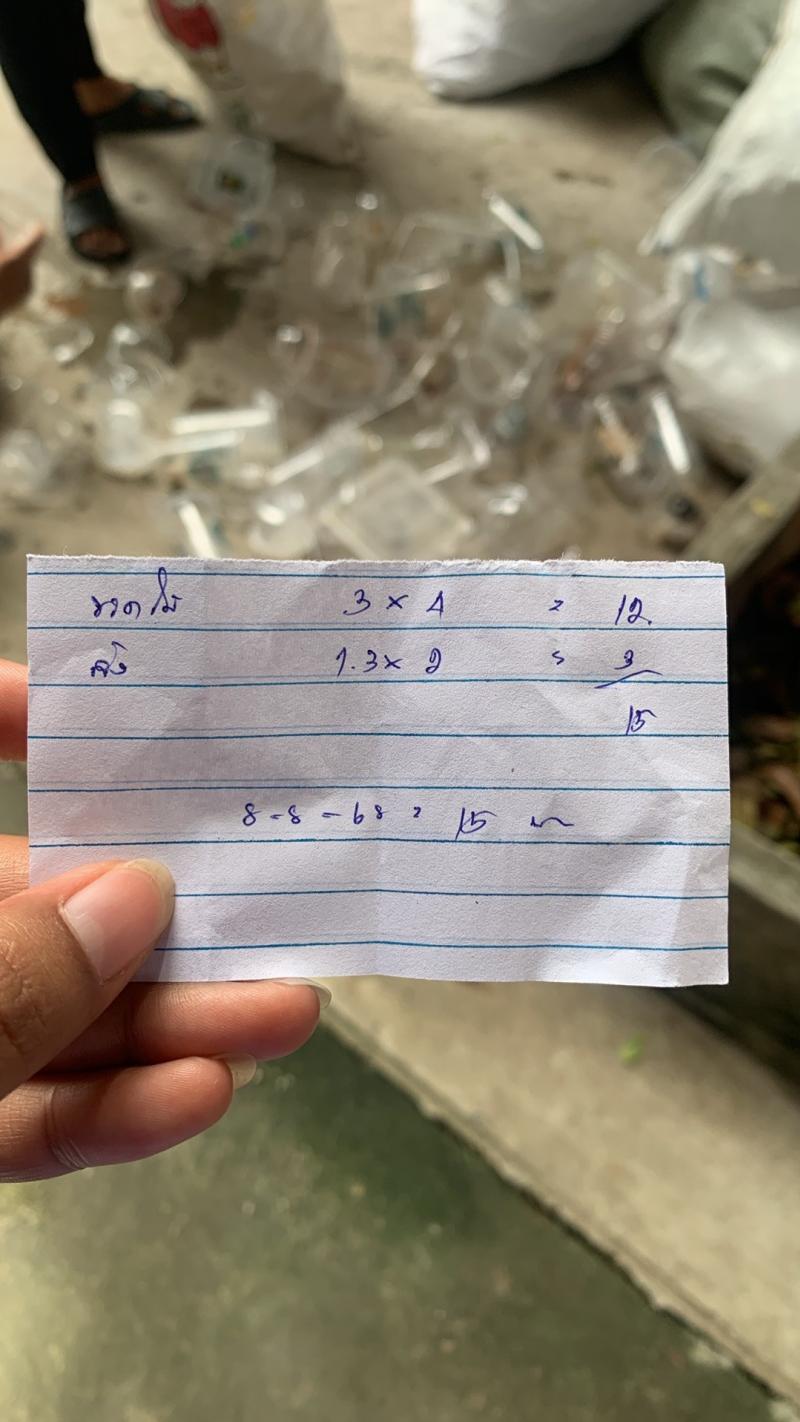 ขวดใส 3 x 4 = 12.
ลัง 1.3 x 2 = 3
15
8-8-68 = 15